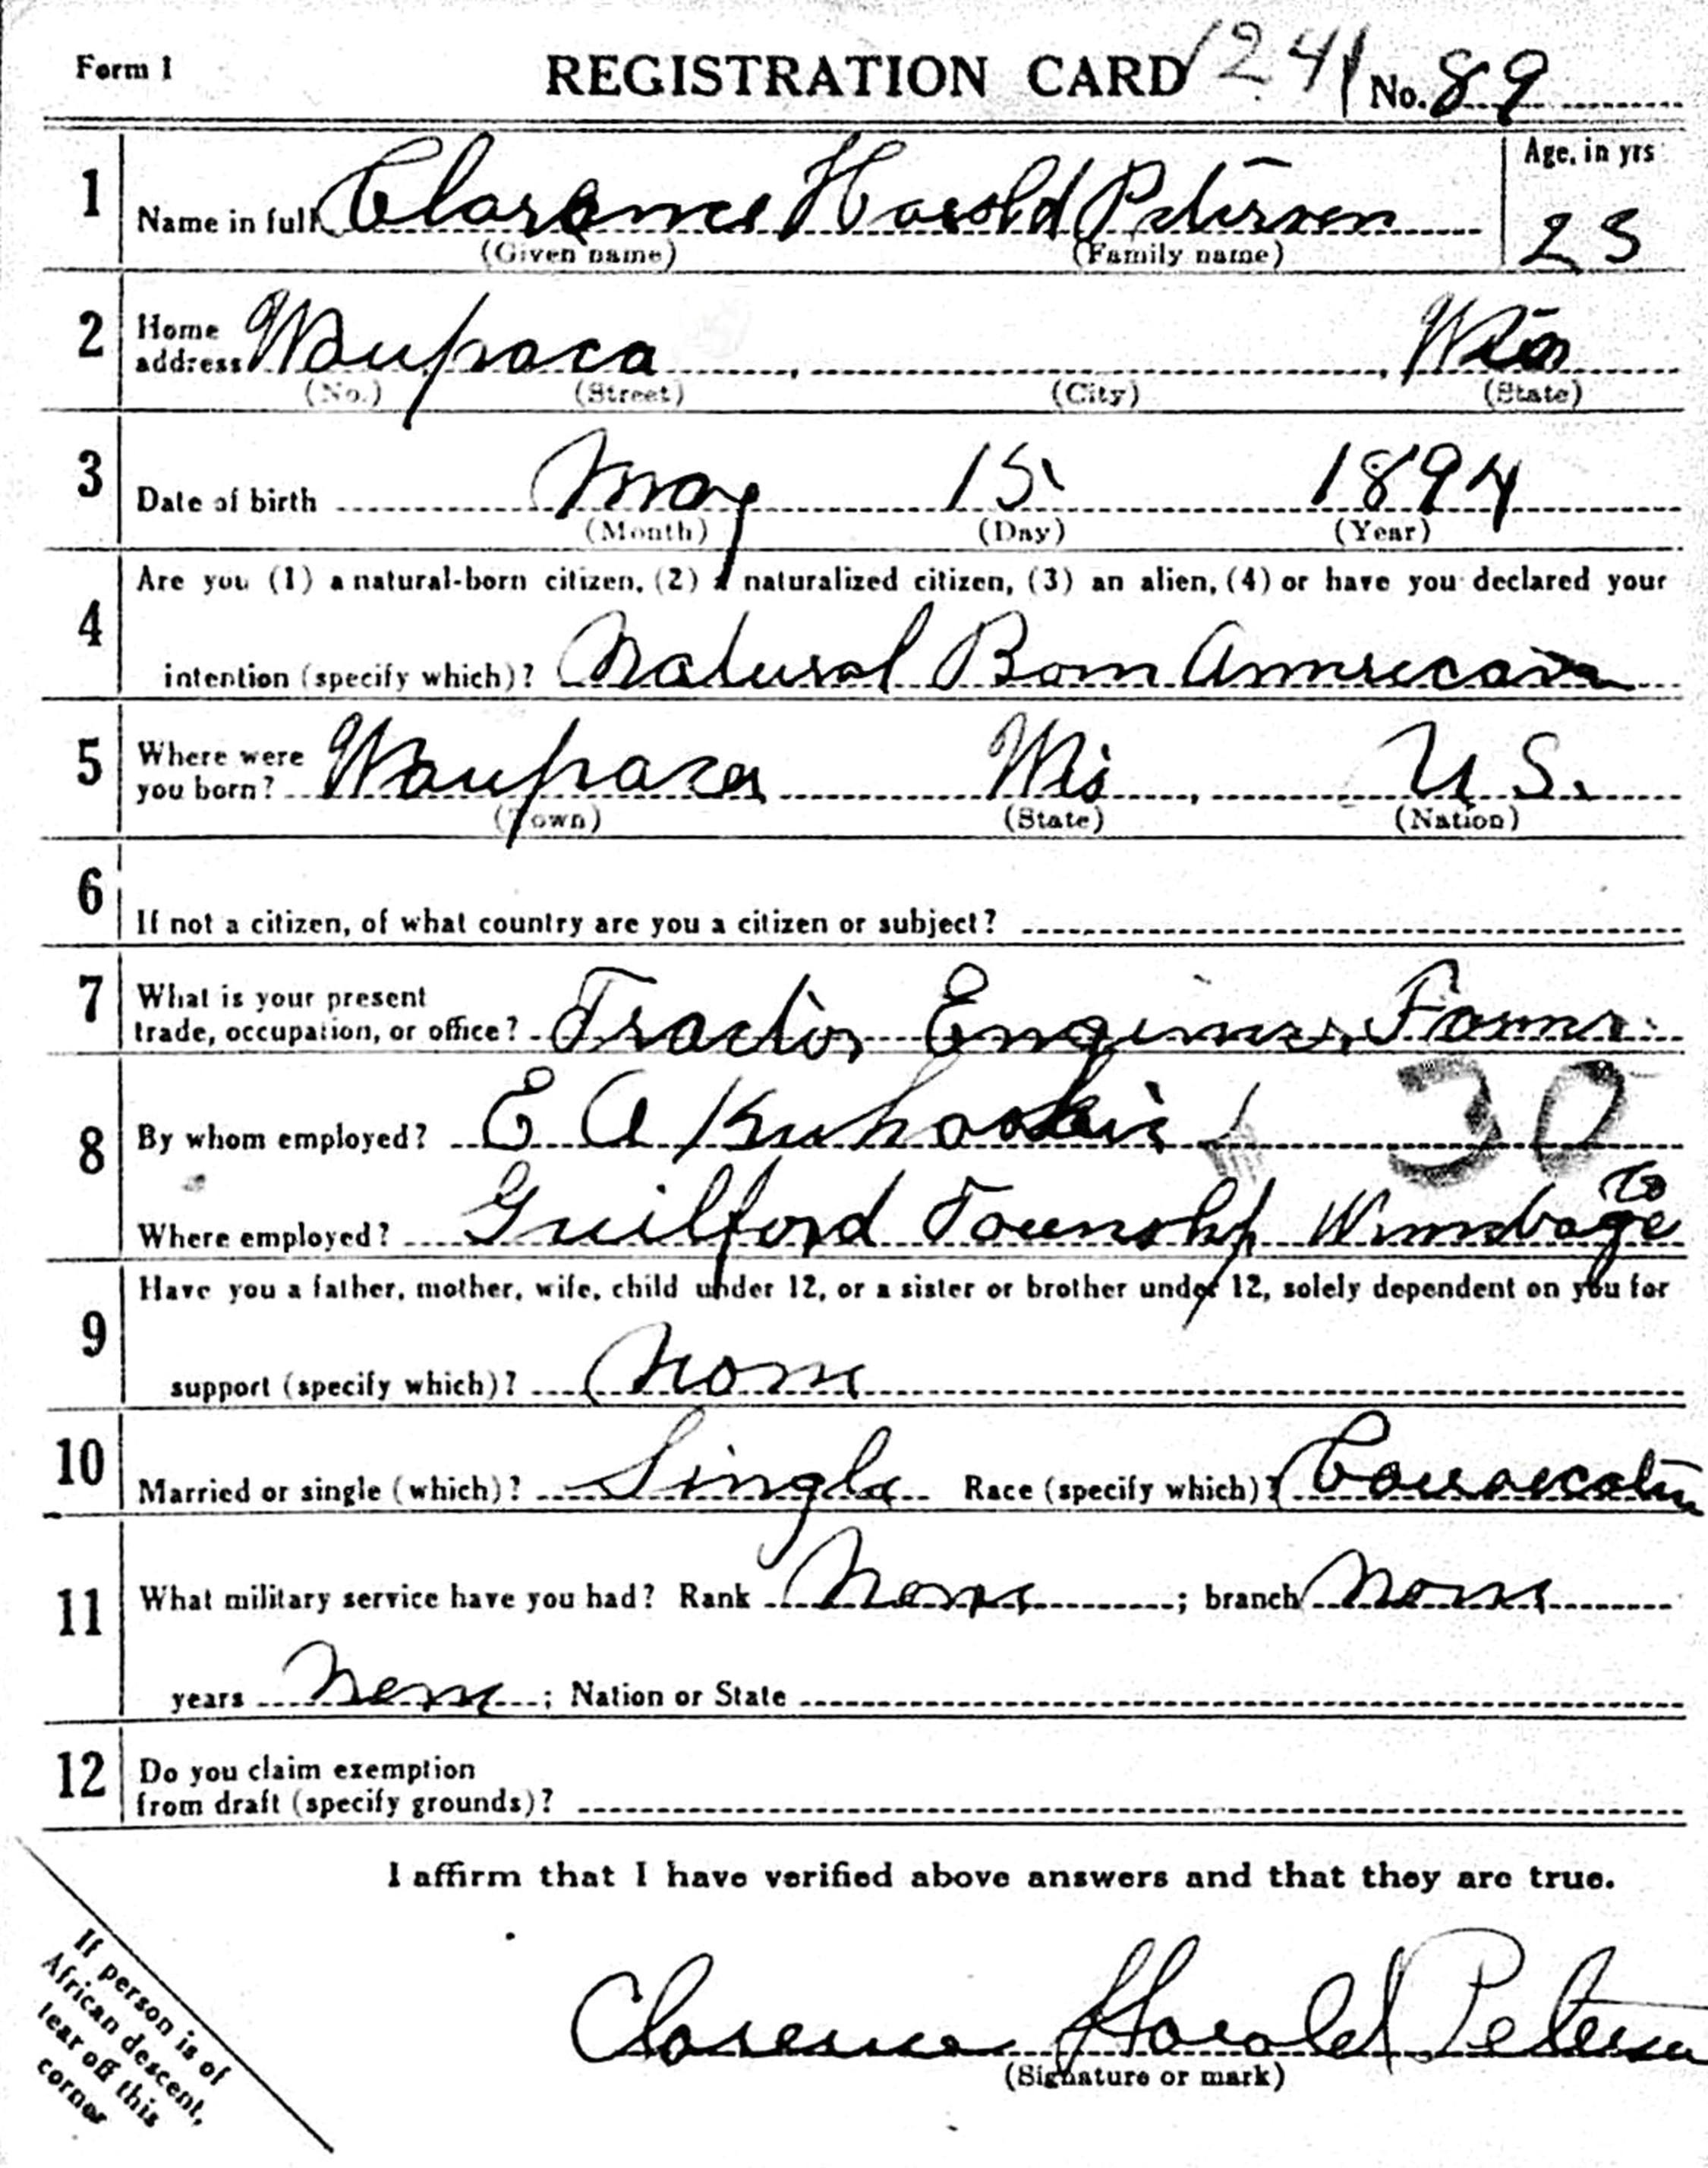 Form 1 REGISTRATION CARD 1241 No. 89
1 Name in full Clarence Harold Petersen Age, in yrs
(Given name) (Family name) 23
2 Home address Waupaca Wis
(No.) (Street) (City) (State)
3 Date of birth May 15 1894
(Month) (Day) (Year)
Are you (1) a natural-born citizen, (2) a naturalized citizen, (3) an alien, (4) or have you declared your
4 intention (specify which)? Natural Born American
5 Where were you born? Waupaca Wis U S.
(Town) (State) (Nation)
6 If not a citizen, of what country are you a citizen or subject?
7 What is your present
trade, occupation, or office? Tractor Engineer Farmer
8 By whom employed? E A 30
Co
Where employed? Guilford Townshp Winnebago
Have you a father, mother, wife, child under 12, or a sister or brother under 12, solely dependent on you for
9 support (specify which)? None
10 Married or single (which)? Single Race (specify which)?
11 What military service have you had? Rank None ; branch None
years None ; Nation or State
12 Do you claim exemption
from draft (specify grounds)?
I affirm that I have verified above answers and that they are true.
Clarence Harold Petersen
(Signature or mark)
If person is of
African descent,
tear off this
corner